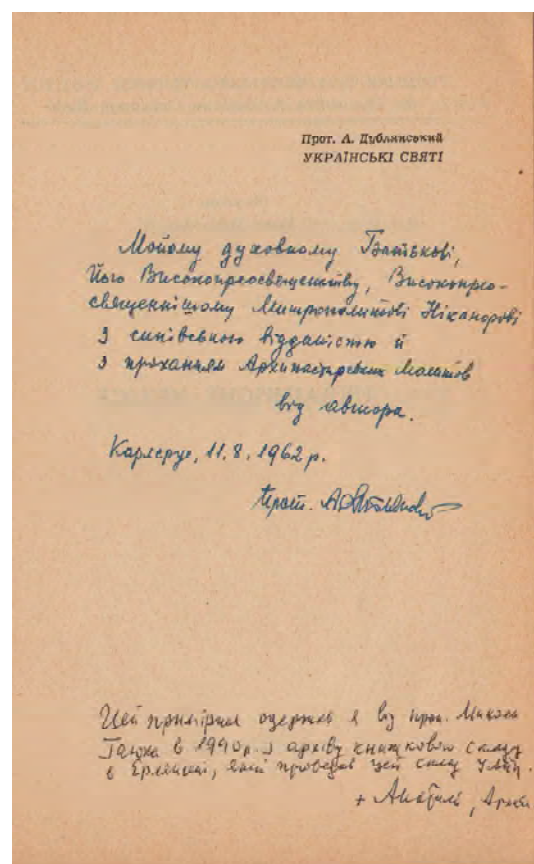 Прот. А. Дублянський
УКРАЇНСЬКІ СВЯТІ
Мойому духовному Батькові,
Його Високопреосвященству, Високопрео-
священнішому Митрополитові Ніканорові
З синівською відданістю й
з проханням Архипастирських Молитов
від автора.
Карлсруе, 11.8.1962 р.
Прот.
Цей примірник одержав я від прот.
в 1990 р. з архіву книжкового складу
в
+ Анатолій,